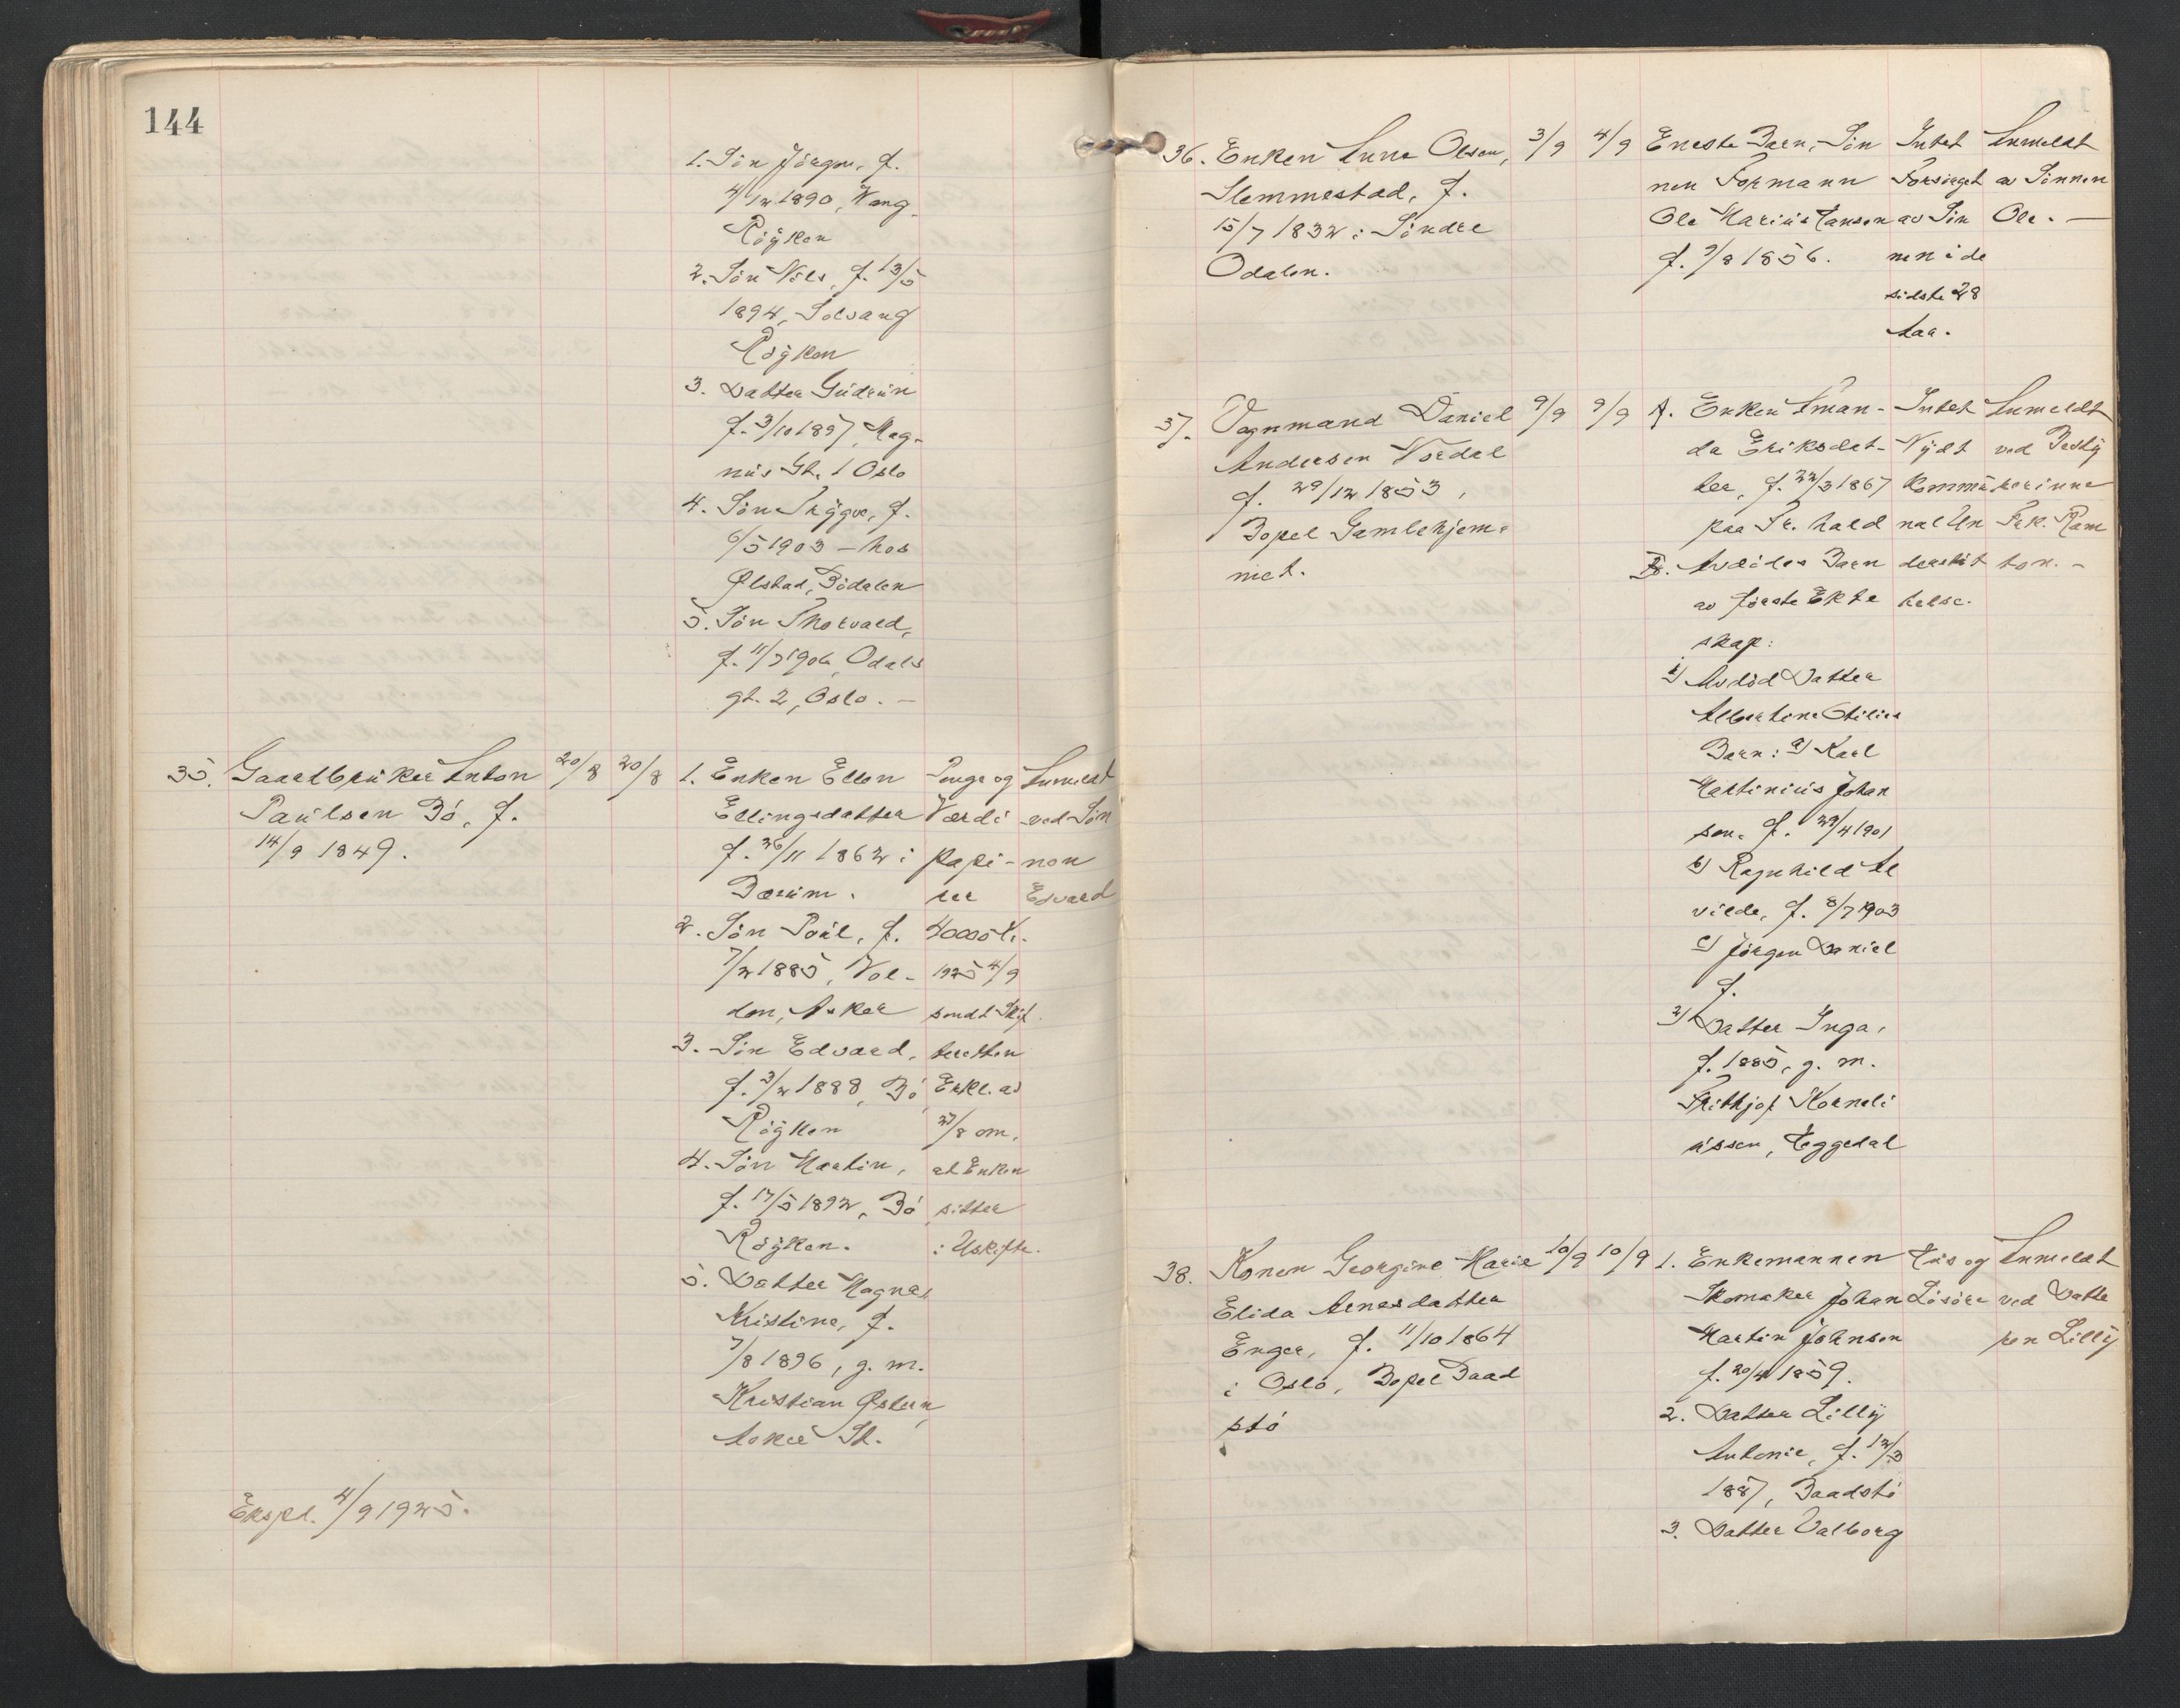 144
1. Søn Jörgen, f.
4/12 1890, Wang,
Röÿken
2. Søn Nils, f. 13/5
1894, Solvang
Röÿken
3. Datter Gudrun
f. 3/10 1897, Mag-
nus Gt. 1 Oslo
4. Søn Trÿgve, f.
6/5 1903 - hos
Ølstad, Bödalen
5. Søn Thorvald,
f. 11/7 1906, Odals
gt. 2, Oslo. -
35. Gaardbruker Anton
Paulsen Bö, f.
14/9 1849.
20/8 20/8
1. Enken Ellen
Ellingsdatter
f. 26/11 1862 i
Bærum.
2. Søn Paul, f.
7/2 1885, Vol-
den, Asker
3. Søn Edvard,
f. 3/2 1888, Bö
Röÿken
4. Søn Martin,
f. 17/5 1892, Bö
Röÿken.
5. Datter Magna
Kristine, f.
7/8 1896, g. m.
Kristian Østern,
Asker St.
Penge og
Værdi
papi-
rer
40000 Kr.
1925 4/9
sendt Skif
teretten
Erkl. av
27/8 om,
at Enken
sitter
i Uskifte.
Anmeldt
ved Søn
nen
Edvard
Exspd. 4/9 1925.
36. Enken Anna Olsen,
Slemmestad, f.
15/7 1832 i Söndre
Odalen.
3/9 4/9
Eneste Barn, Søn
nen Formann
Ole Marius Hansen
f. 9/8 1856.
Intet
Forsörget
av Søn
nen i de
sidste 28
Aar.
Anmeldt
av Sönnen
Ole. -
37. Vognmand Daniel
Andersen Nordal
f. 29/12 1853,
Bopel Gamlehjem-
met.
9/9 9/9
A. Enken Aman-
da Eriksdat-
ter, f. 22/3 1867
paa Sr. hald
B. Avdödes Barn
av förste Ekte
skap:
1) Avdöd Datter
Albertine Otilies
Barn: a) Karl
Martinius Johan
sen. f. 29/4 1901
b) Ragnhild Al
vilde, f. 8/7 1903
c) Jörgen Daniel
f.
2) Datter Inga,
f. 1885, g. m.
Frithjof Korneli
ussen, Heggedal
Intet
Nÿdt
Kommu
nal Un
derstöt
telse.
Anmeldt
ved Bestÿ
rerinne
Frk. Ram
ton. -
38. Konen Georgine Marie
Elida Arnesdatter
Enger, f. 11/10 1864
i Oslo, Bopel Baad
stö
10/9 10/9
1. Enkemannen
Skomaker Johan
Martin Johnsen
f. 20/4 1859.
2. Datter Lillÿ
Antonie, f. 12/3
1887, Baadstö
3. Datter Valborg
Hus og
Lösöre
Anmeldt
ved Datte
ren Lillÿ